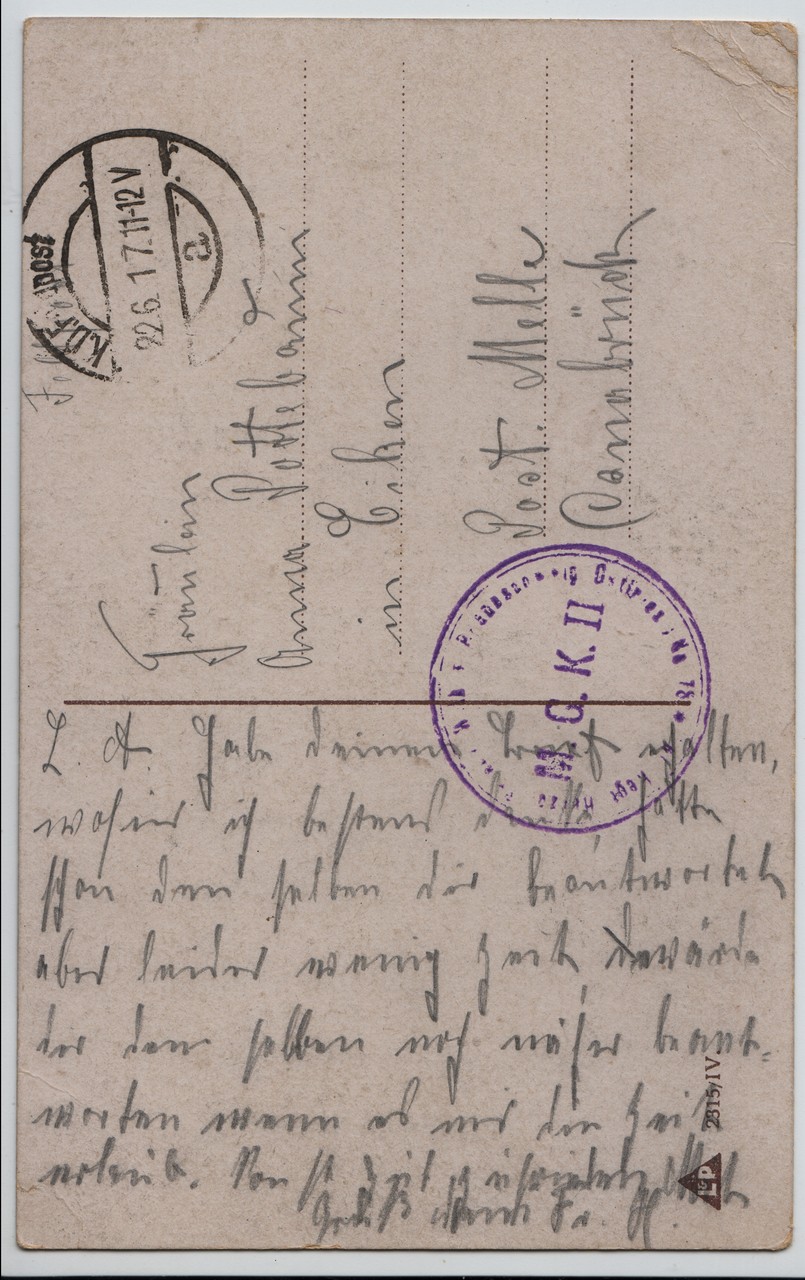 K.D. Feldpost
22.6.17. 11-12 V
a
Fräulein
Anna Pottebaum
in Eiken
Post. Melle
Osnabrück
M. G. K. II
L. A. Habe deinen Brief erhalten,
wofür ich bestens danke, hätte
schon den selben dir beantwortet
aber leider wenig Zeit, werde
dir den selben noch näher beant-
worten wenn es mir die Zeit
erlaub.
Gruß
2315/IV.